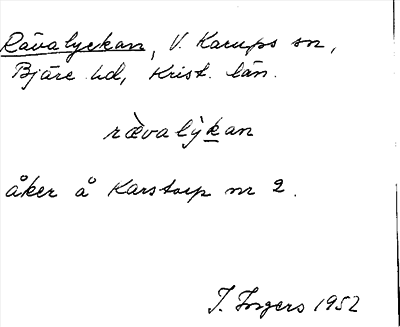 Rävalyckan, V. Karups sn,
Bjäre hd, Krist. län.
rä̀valy̆kan
åker å Karstorp nr 2.
I. Ingers 1952